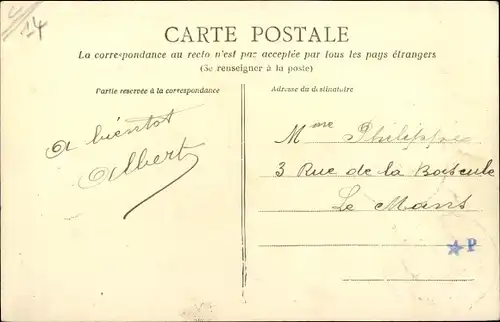 14
CARTE POSTALE
La correspondance au recto n'est pas acceptée par tous les pays étrangers
(Se renseigner à la poste)
Partie reservée à la correspondance
Adresse du destinataire
A bientot
Albert
Mme Philippe
3 Rue de la Bascule
Le Mans
★P